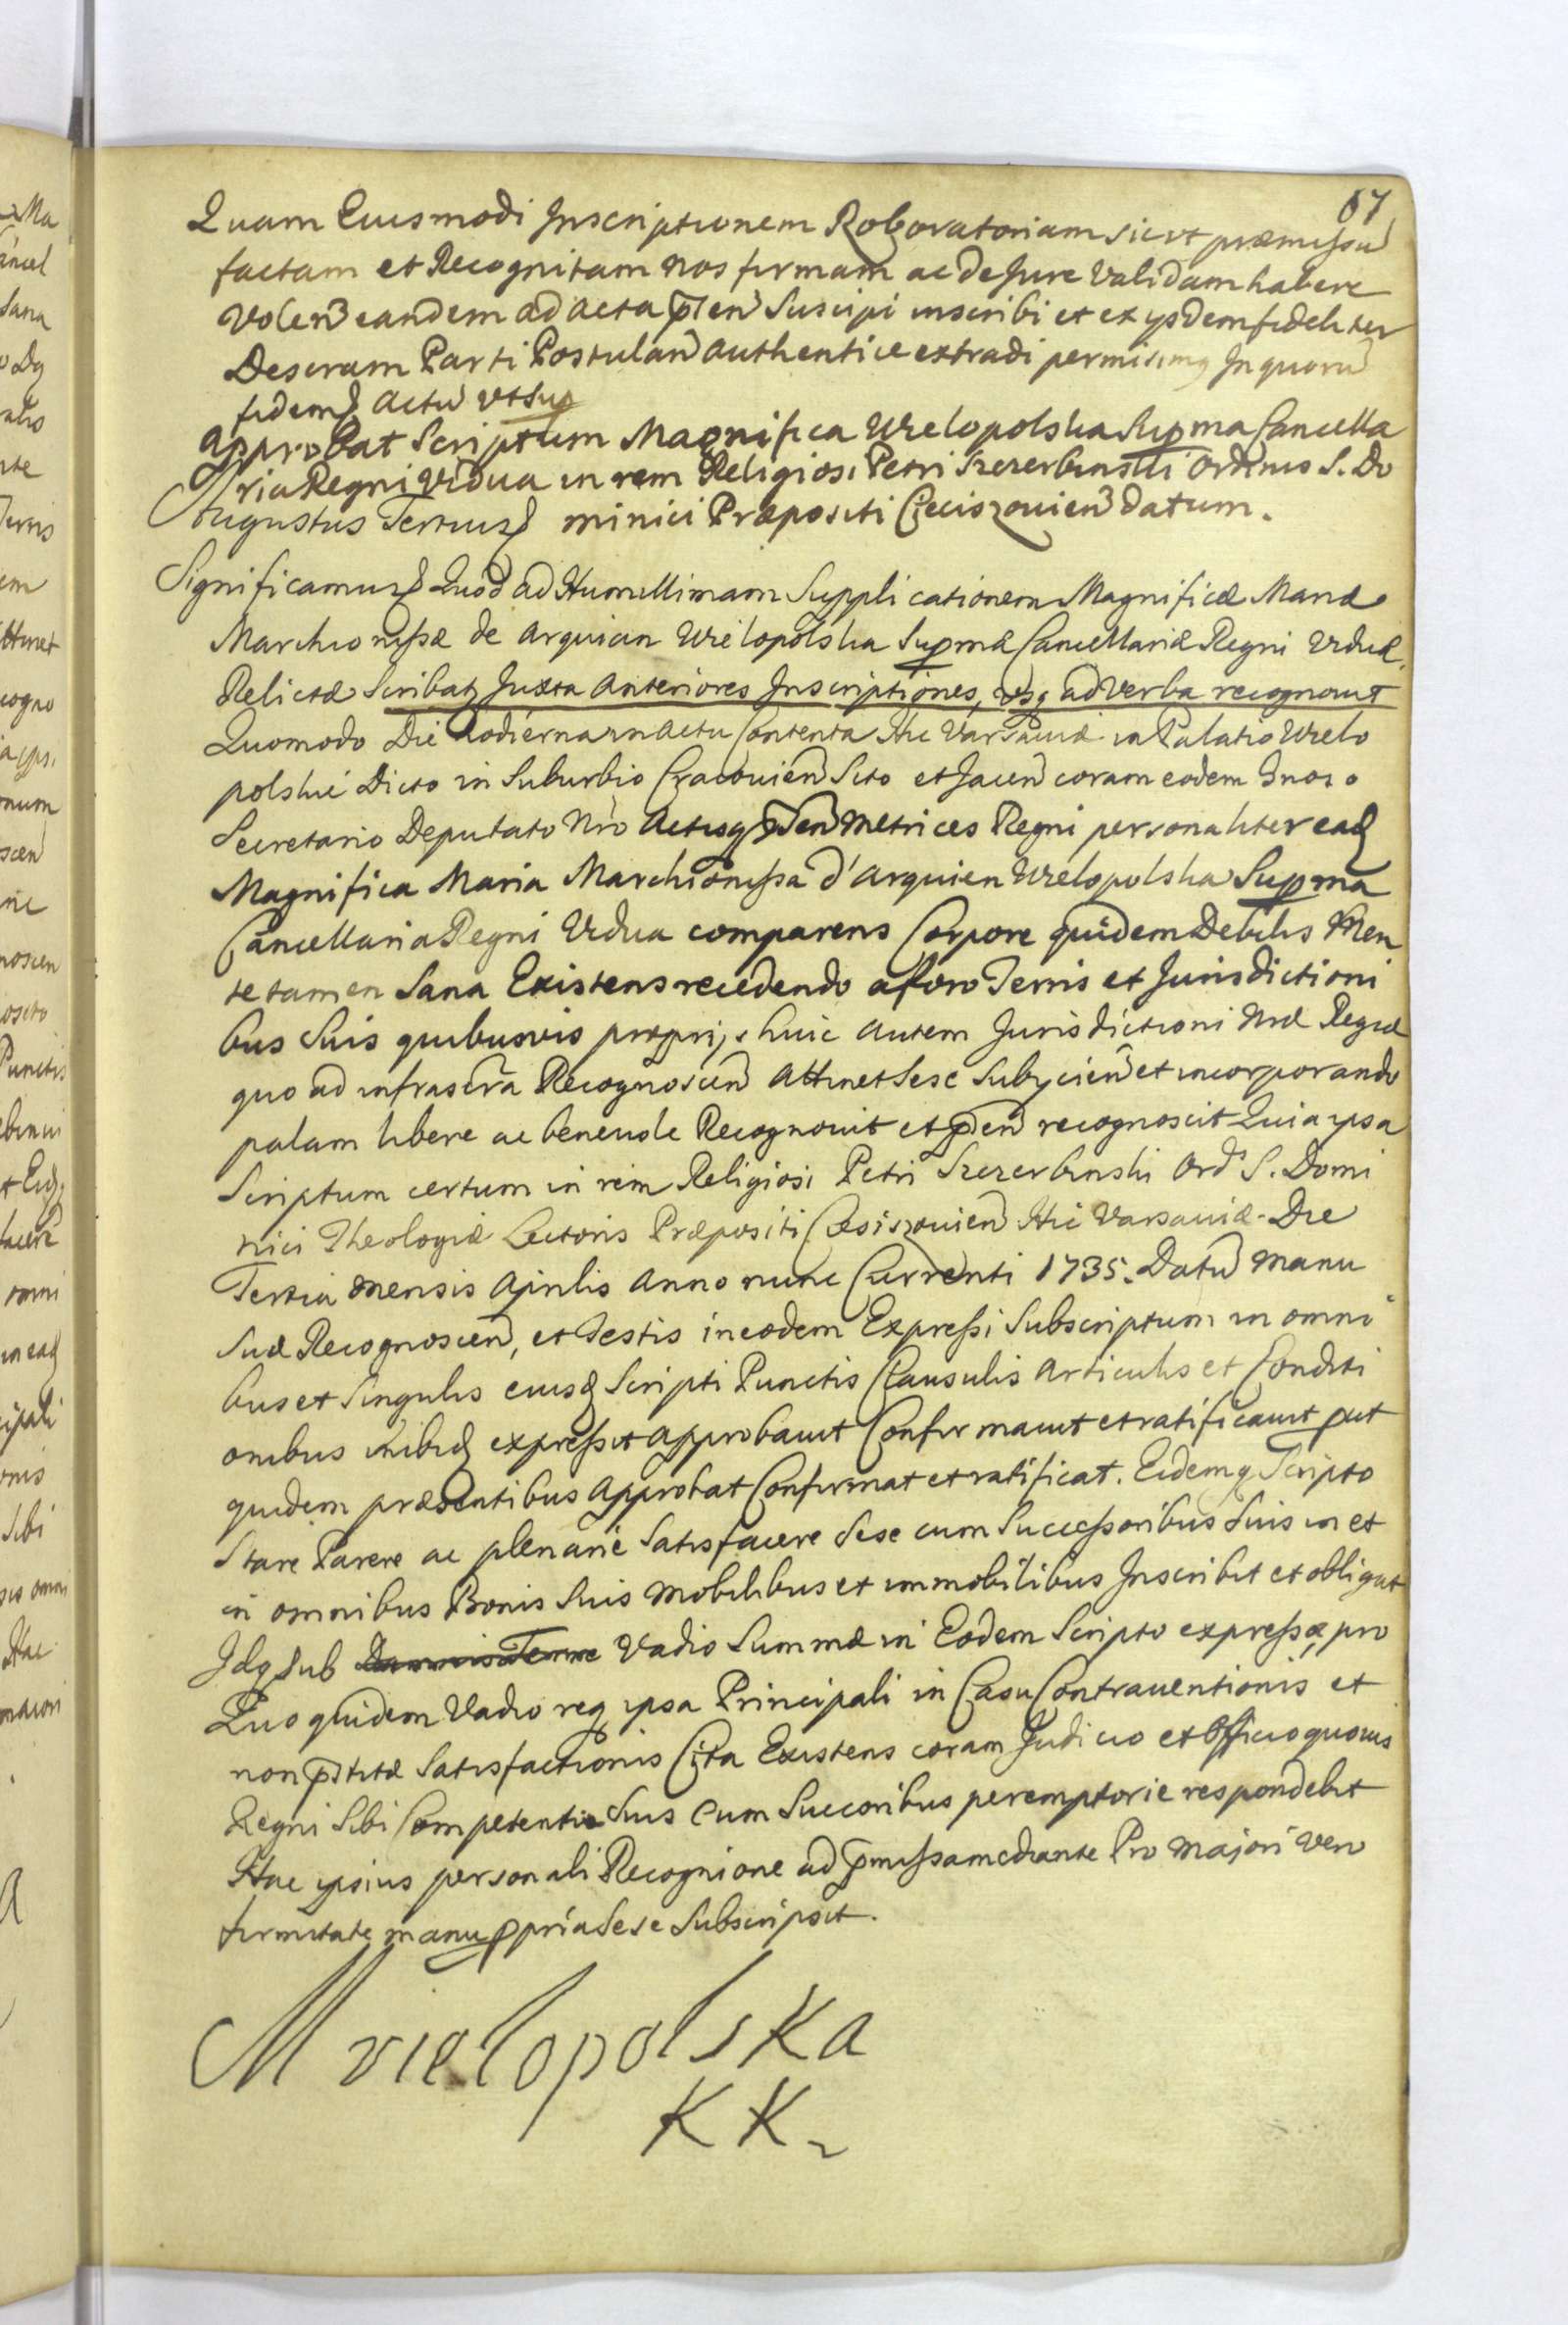 67
Quam Eiusmodi Inscriptionem Roboratoriam sicut præmissū
factam et Recognitam nos firmam ac de Jure Validam habere
Volen̄ eandem ad acta p̄n̄ten̄ Suscipi inscribi et ex ijsdem fideliter
Descram Parti Postulan̄ authentice extradi permisimq In quorū
fidem Actū ut sup
Approbat Scriptum Magnifica Wielopolska Supma Cancella
ria Regni Vidua in rem Religiosi Petri Szczerbinski Ordinis S. Do
Augustus Tertius minici Præpositi Czeciszovien̄ datum.
Significamus Quod ad Humillimam Supplicationem Magnificæ Mariæ
Marchionissæ de Arquian Wielopolska Supmæ Cancellariæ Regni Viduæ
Relictæ Scribatq Juxta Anteriores Inscriptiones, usq ad verba recognovit
Quomodo Die hodierna in Actu Contenta Hic Varsaviæ in Palatio Wielo
polskie Dicto in Suburbio Cracovien̄ Sito et Jacen̄ coram eodem Gnoso
Secretario Deputato Nrō Actisq p̄n̄ten̄ Metrices Regni personaliter ead
Magnifica Maria Marchionissa d'Arquien Wielopolska Supma
Cancellaria Regni Vidua comparens Corpore quidem Debilis Men
te tamen Sana Existens recedendo a foro Terris et Jurisdictioni
bus Suis quibusvis proprijs huic autem Jurisdictioni Nræ Regiæ
quo ad infrascr̄a Recognoscen̄ Attinet Sese Subijcien̄ et incorporando
palam libere ac benevole Recognovit et p̄n̄ten̄ recognoscit Quia ipsa
Scriptum certum in rem Religiosi Petri Szczerbinski Ord: S. Domi
nici Theologiæ Lectoris Præpositi Cesiszovien̄ Hic Varsaviæ Die
Tertia mensis Aprilis Anno nunc Currenti 1735. Datū manu
Suæ Recognoscen̄, et Testis in eodem Expressi Subscriptum in omni
bus et Singulis eiusd Scripti Punctis Clausulis Articulis et Conditi
onibus inibid expressit approbavit Confirmavit et ratificavit put
quidem præsentibus Approbat Confirmat et ratificat. Eidemq Scripto
Stare Parere ac plenarie Satisfacere Sese cum Successoribus Suis in et
in omnibus Bonis Suis mobilibus et immobilibus Inscribit et obligat
Idq Sub Vadio Summæ in Eodem Scripto expressæ, pro
Quo quidem Vadio req ipsa Principali in Casu Contraventionis et
non p̄stitæ Satisfactionis Cita Existens coram Judicio et Officio quovis
Regni Sibi Competenti Suis cum Succoribus peremptorie respondebit
Hac ipsius personali Recognione ad p̄missa mediante Pro majori vero
firmitate manu ppria Sese Subscripsit.
M vielopolska
KK